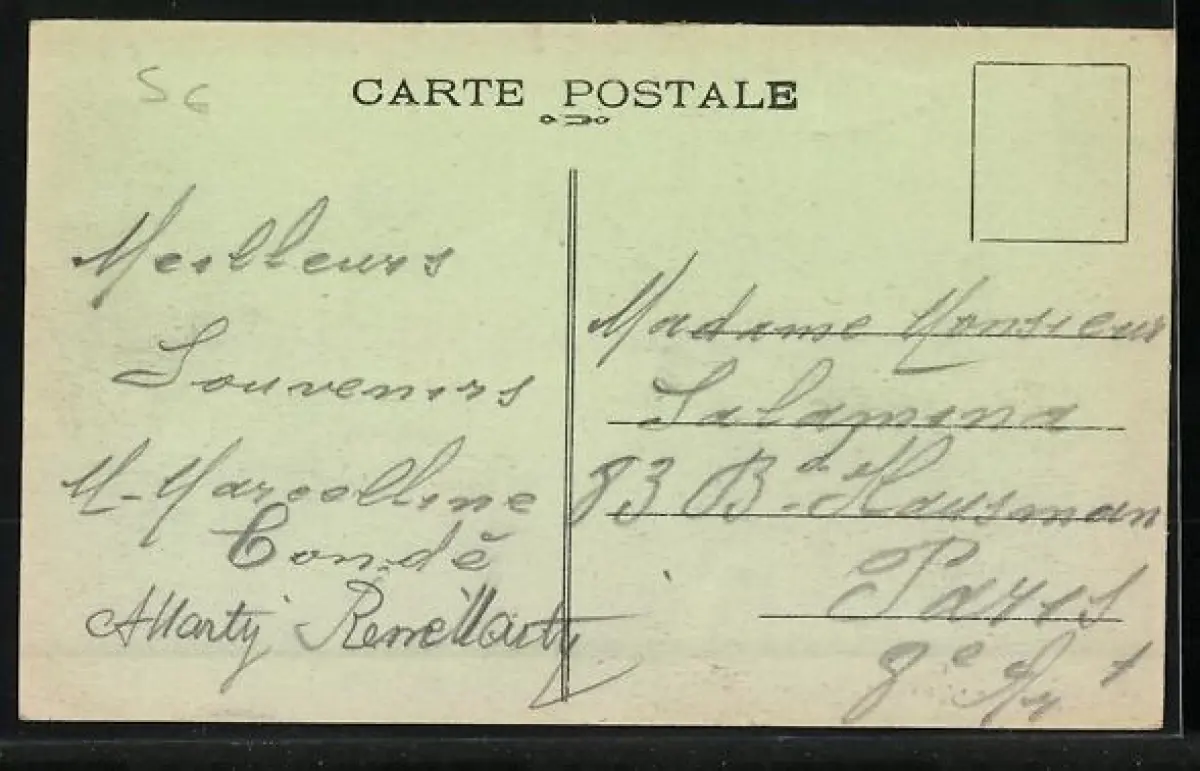 56
CARTE POSTALE
Meilleurs
Souvenirs
M-Marcelline
Condé
AMarty RenéMarty
Madame Monsieur
Salamena
83 Bd-Hausman
Paris
8e Art